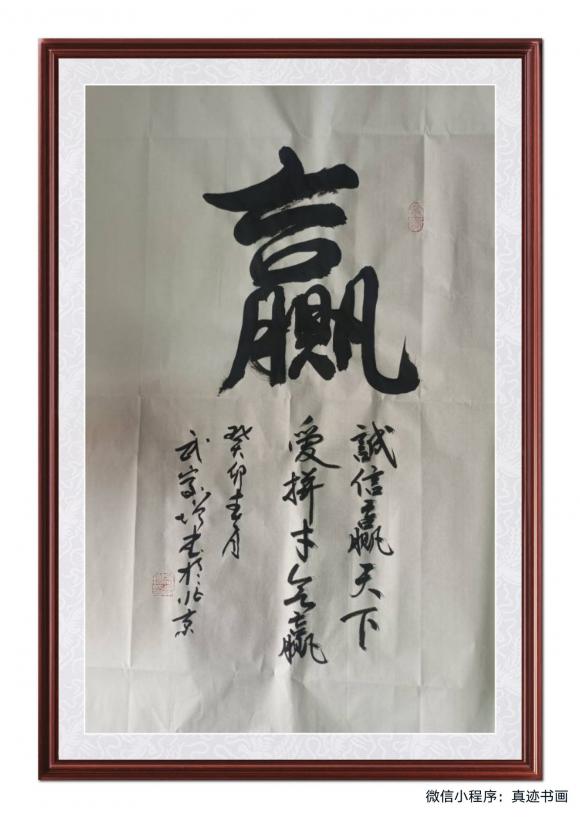 贏
誠信贏天下
愛拼才會贏
癸卯春月
武家书於北京
微信小程序：真迹书画